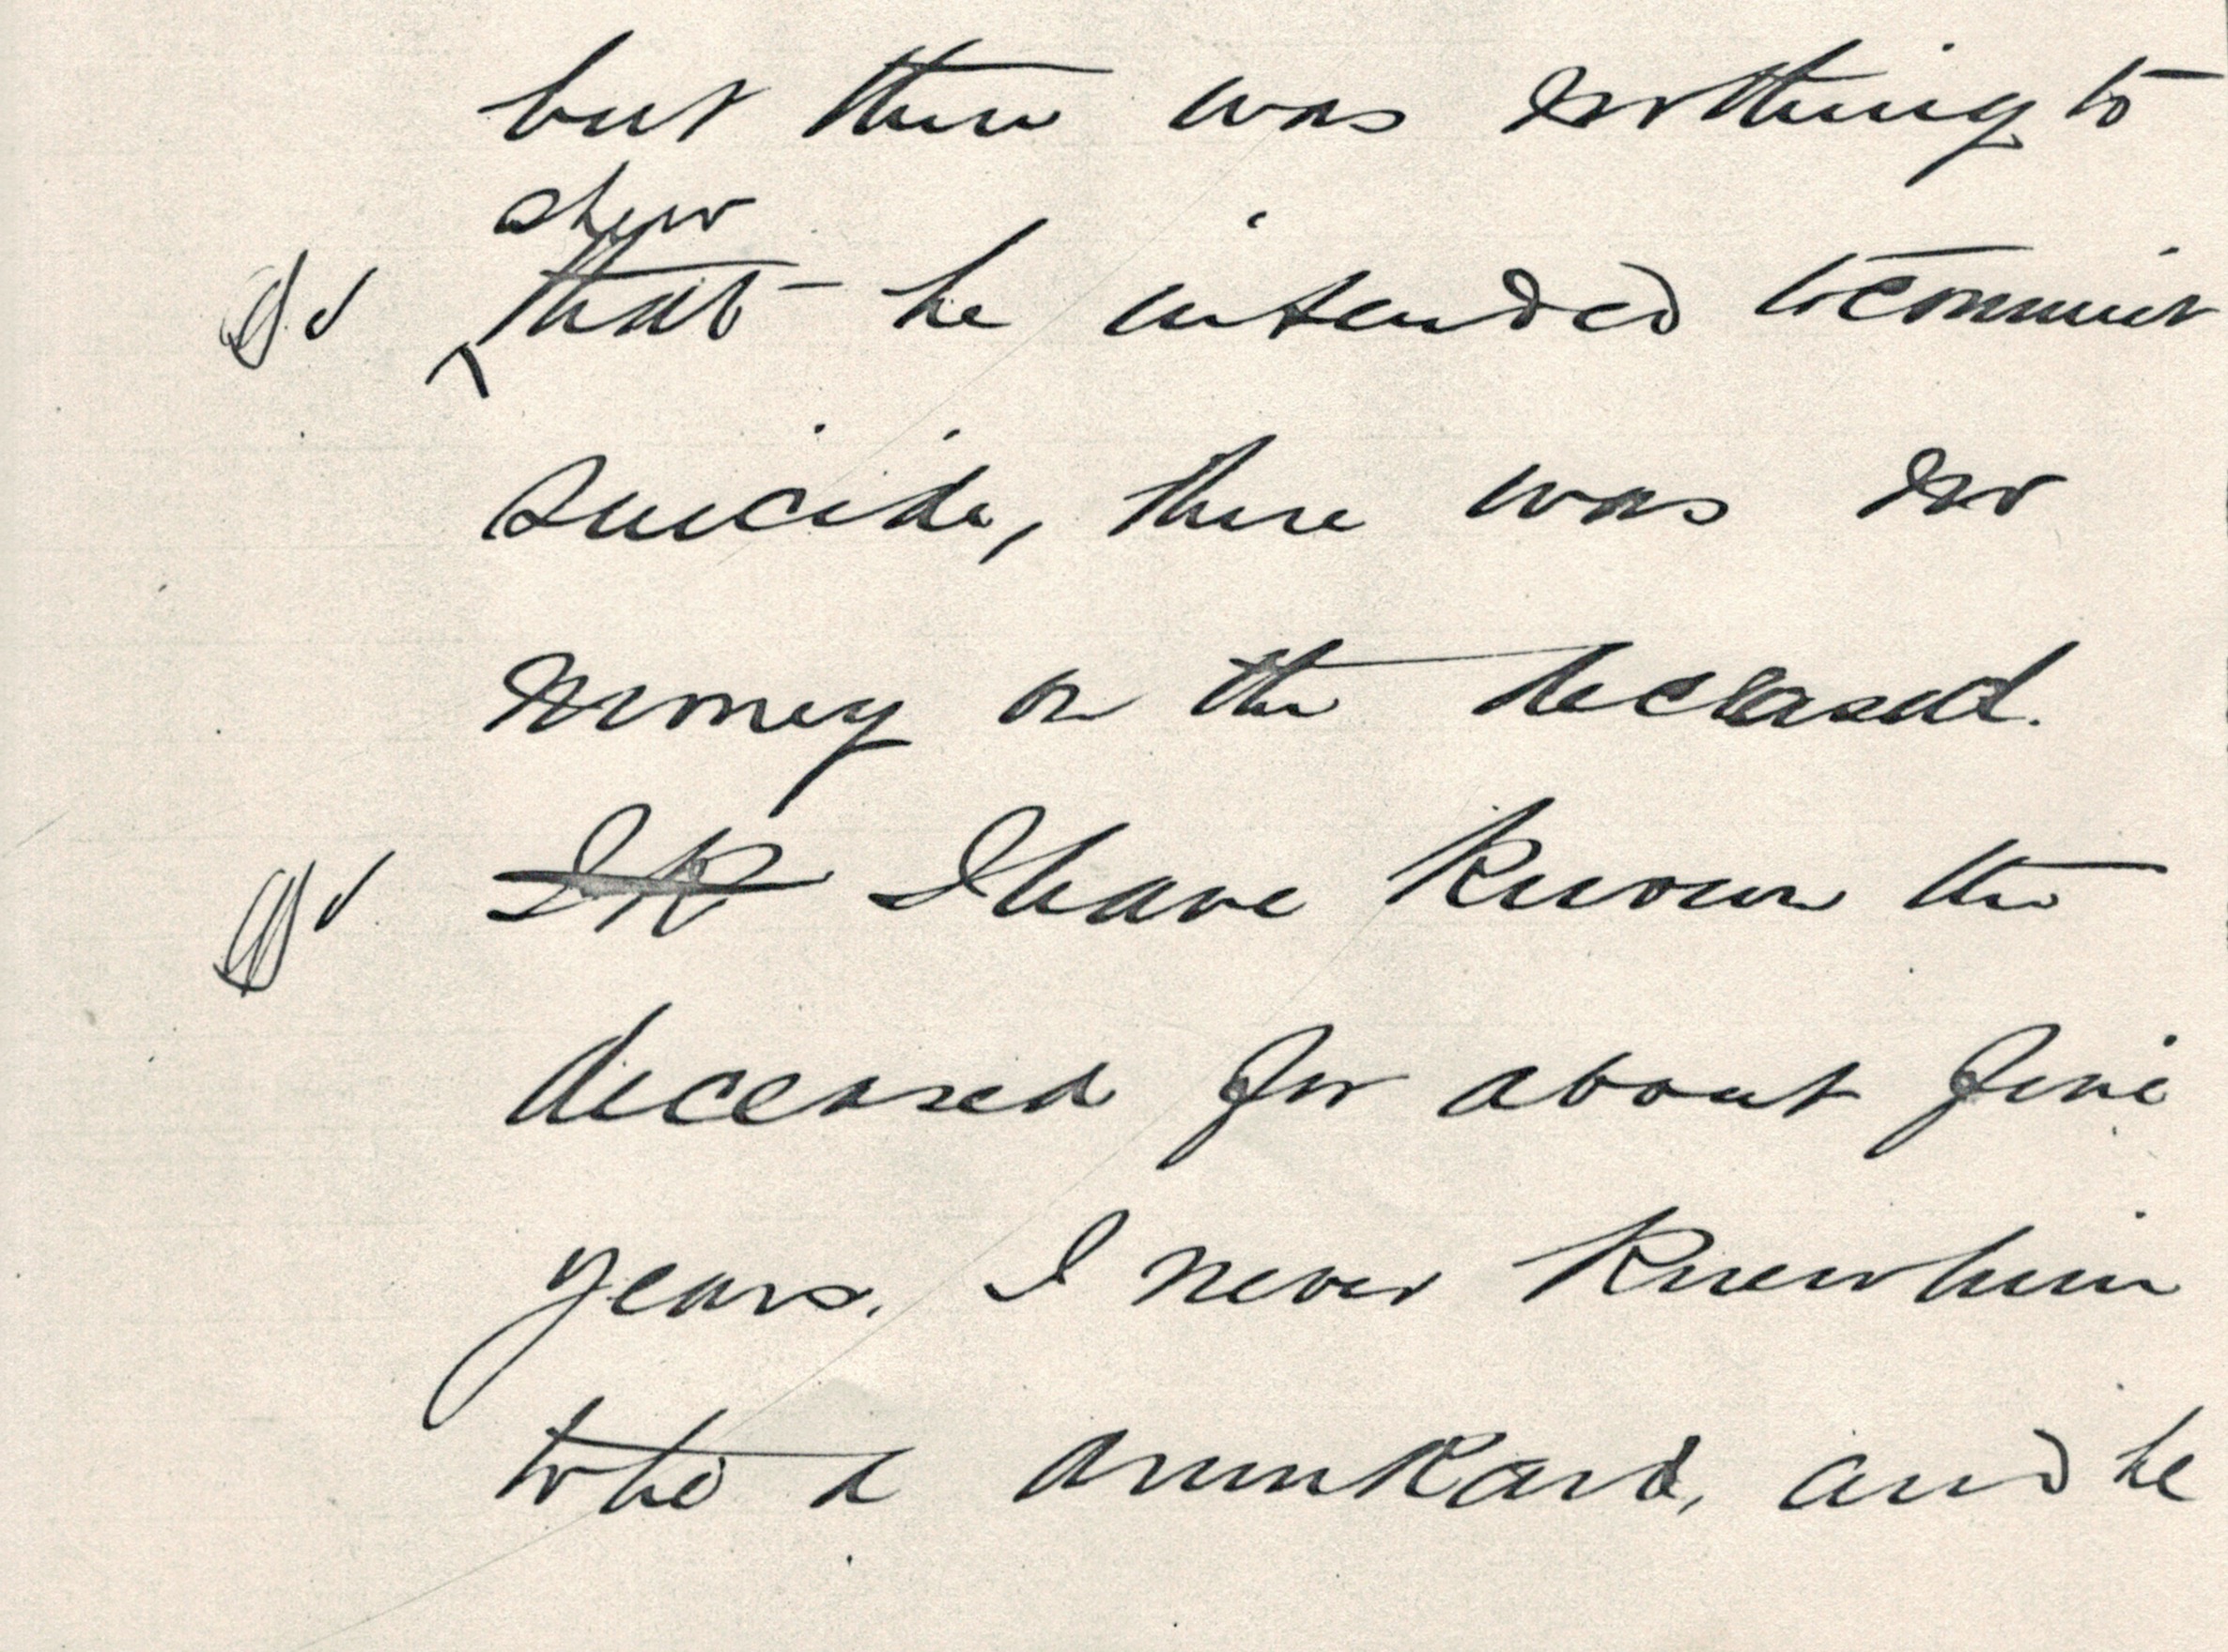 but there was nothing to
shew
that he intended to commit
suicide, there was no
money on the deceased.
I K I have known the
deceased for about five
years. I never knew him
to be a drunkard, and he